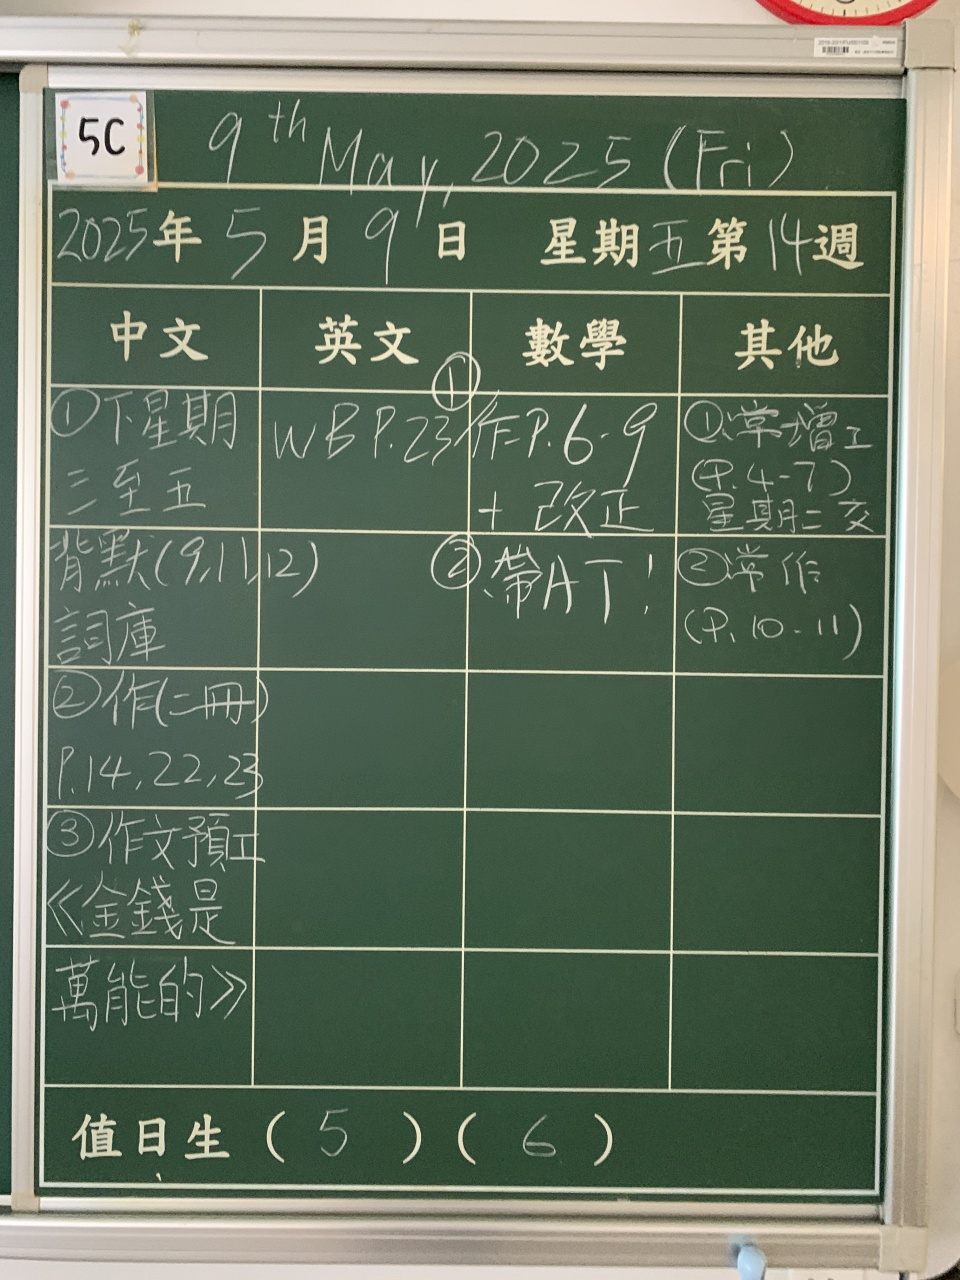 5C
9th May, 2025 (Fri)
2025年5月9日 星期五第14週
中文
英文
數學
其他
①下星期
三至五
背默(9,11,12)
詞庫
②作(二冊)
P.14,22,23
③作文預工
《金錢是
萬能的》
WB P.23
①作P.6-9
+改正
②帶AT!
①常增工
(P.4-7)
星期二交
②常作
(P.10-11)
值日生(5)(6)